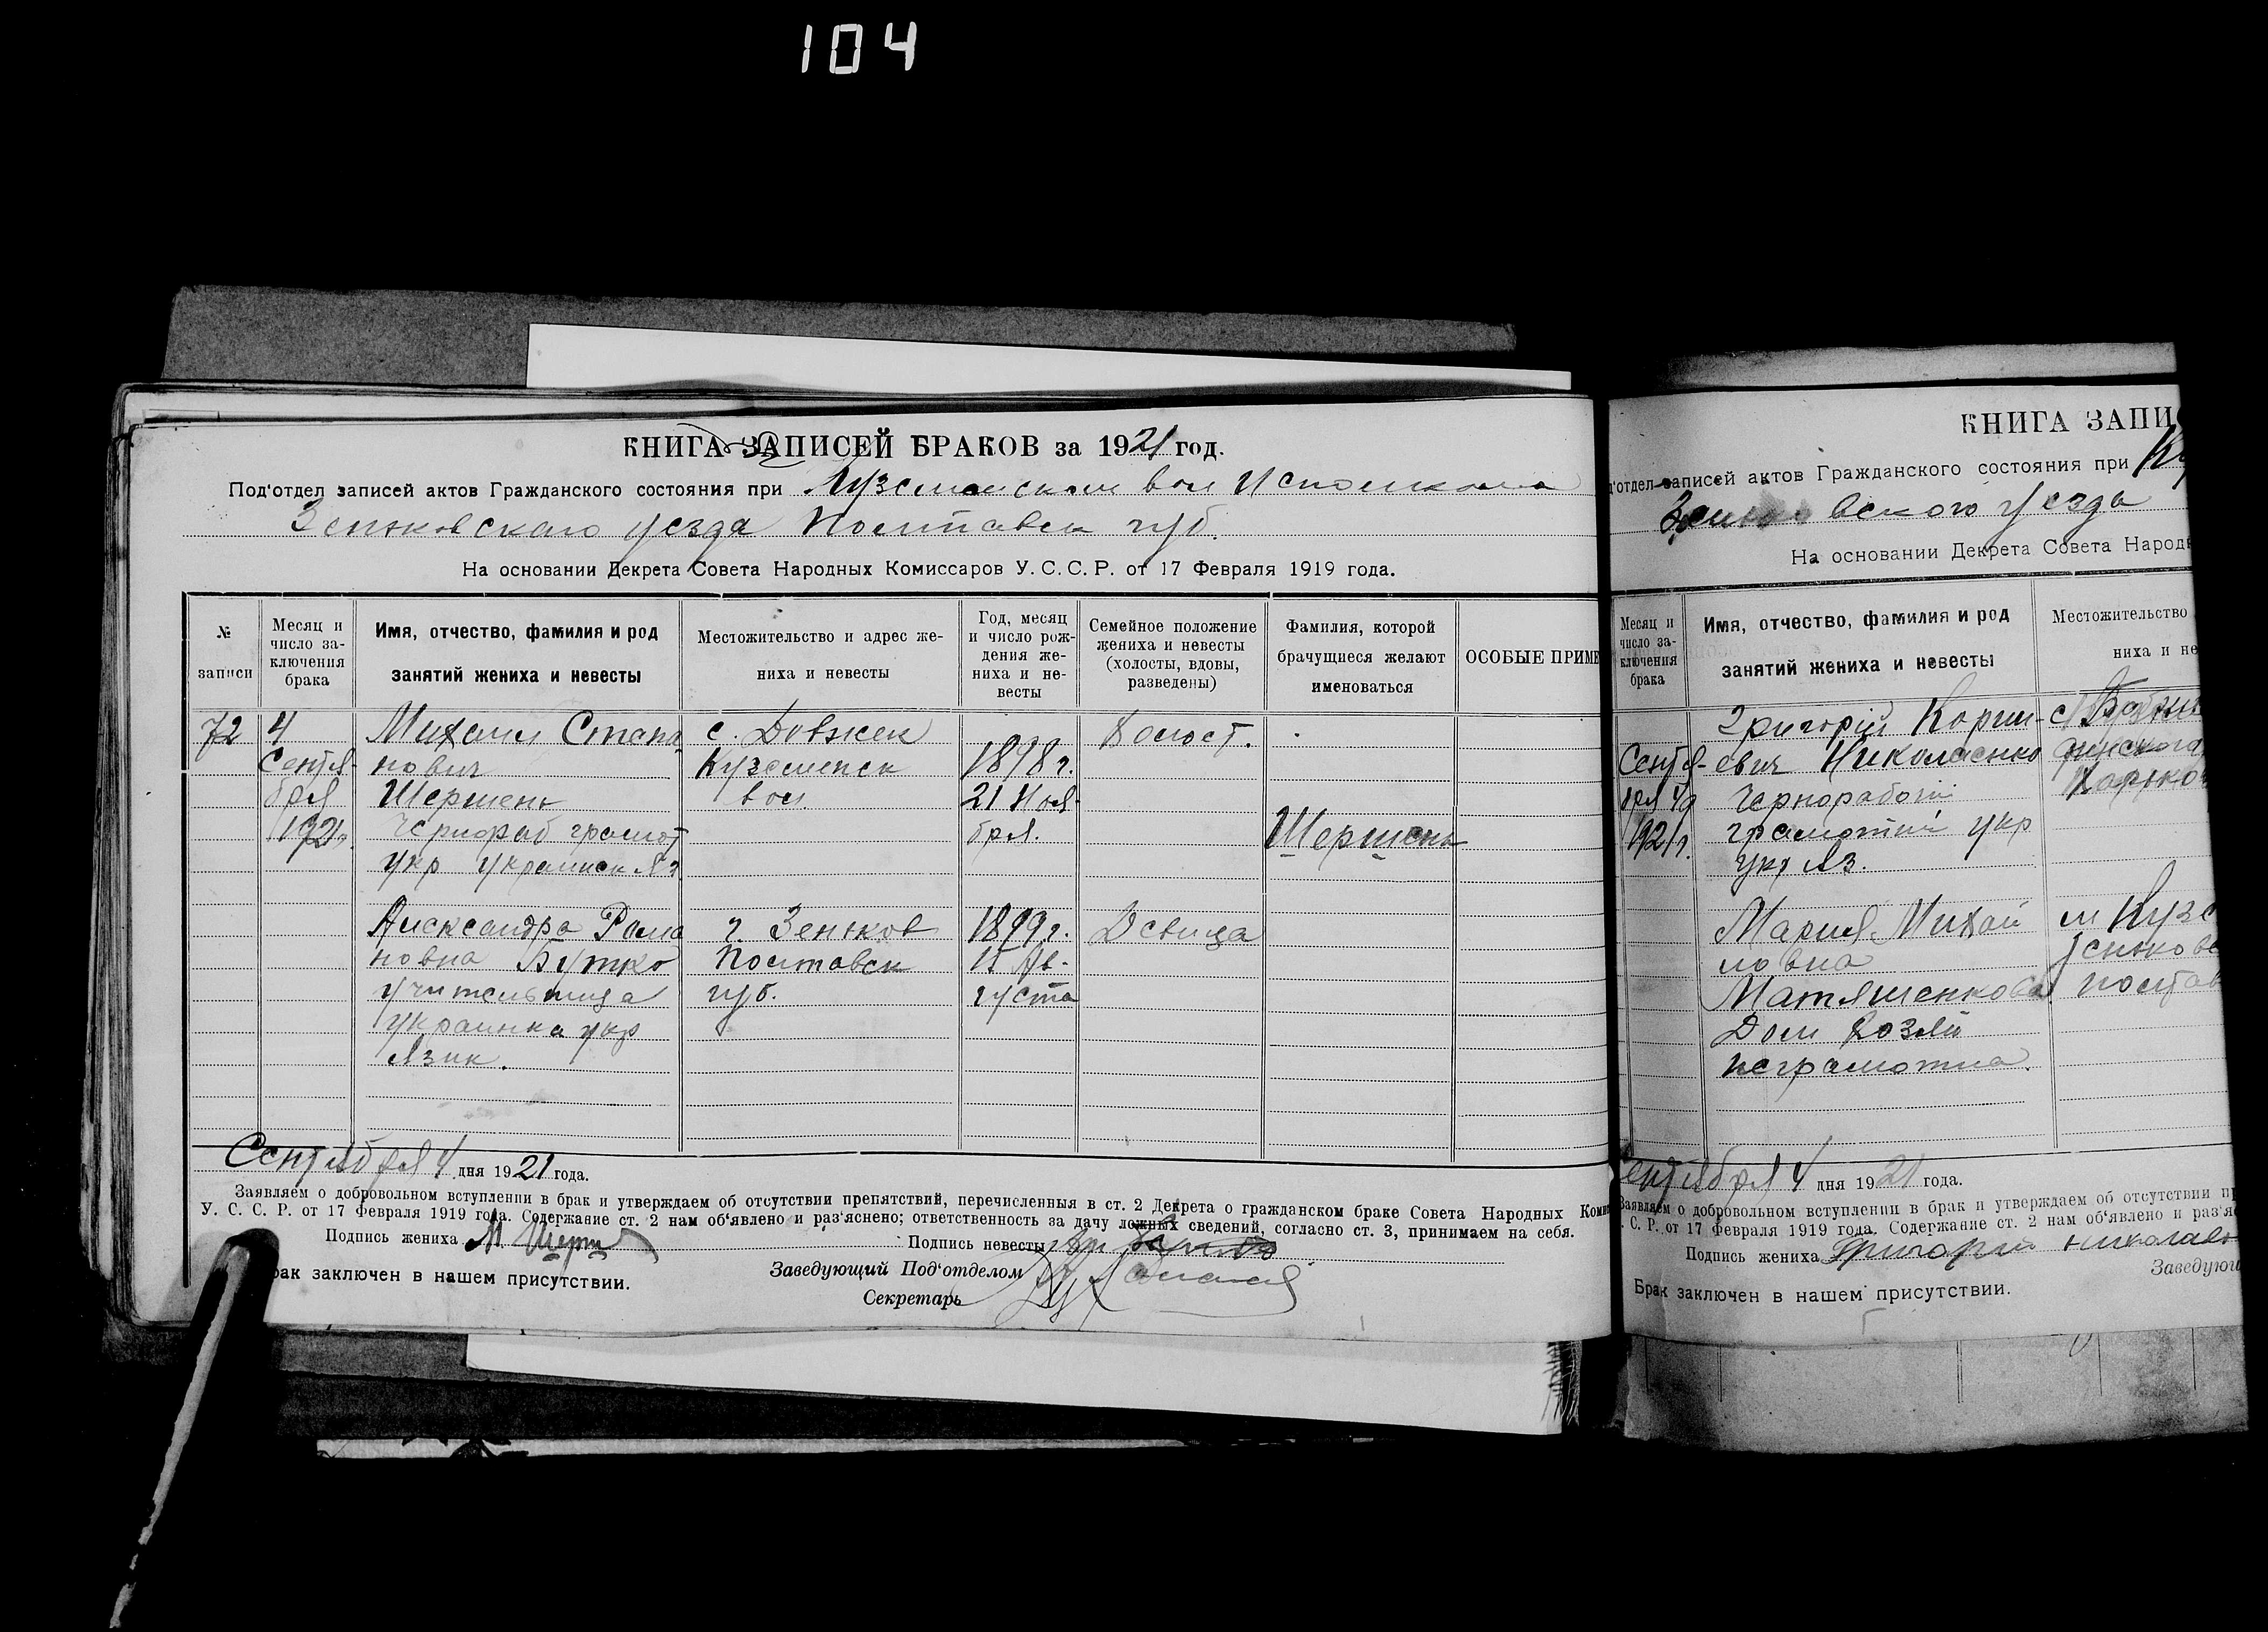 104
КНИГА ЗАПИСЕЙ БРАКОВ за 1921 год.
Под'отдел записей актов Гражданского состояния при Куземенском вол Исполкома
Зеньковскаго уезда Полтавск губ.
На основании Декрета Совета Народных Комиссаров У.С.С.Р. от 17 Февраля 1919 года.
№ записи
Месяц и число заключения брака
Имя, отчество, фамилия и род занятий жениха и невесты
Местожительство и адрес жениха и невесты
Год, месяц и число рождения жениха и невесты
Семейное положение жениха и невесты (холосты, вдовы, разведены)
Фамилия, которой брачущиеся желают именоваться
ОСОБЫЕ ПРИМЕ
72 4 Михаил Степа с. Довжек Холост.
Сентя- нович Куземенск 1898 г.
бря Шершень вол 21 Ноя-
1921 г. Чернораб грамот бря. Шершень
укр украинск яз.
Александра Рома г. Зеньков 1899 г. Девица
новна Бутко Полтавск 15 Ав-
учительница губ. густа
украинка укр
язик.
Сентября 4 дня 1921 года.
Заявляем о добровольном вступлении в брак и утверждаем об отсутствии препятствий, перечисленныя в ст. 2 Декрета о гражданском браке Совета Народных
У. С. С. Р. от 17 Февраля 1919 года. Содержание ст. 2 нам об'явлено и раз'яснено; ответственность за дачу ложных сведений, согласно ст. 3, принимаем на себя.
Подпись жениха М Шерш Подпись невесты
рак заключен в нашем присутствии. Заведующий Под'отделом
Секретарь
КНИГА ЗАПИ
отдел записей актов Гражданского состояния при
вского уезда
На основании Декрета Совета Народ
Месяц и число заключения брака
Имя, отчество, фамилия и род занятий жениха и невесты
Местожительство
ниха и не
Григорій Корни-
Сентя- евич Николаенко
бря 4 Черноработи
1921 г. грамотний укр
укр яз.
Мария Михай м Кузе
ловна
Матяшенкова полтав
Дом хозяй
неграмотна.
Сентября 4 дня 1921 года.
Заявляем о добровольном вступлении в брак и утверждаем об отсутствии
С. Р. от 17 Февраля 1919 года. Содержание ст. 2 нам об'явлено и раз'я
Подпись жениха Григорий Николаев
Заведующ
Брак заключен в нашем присутствии.